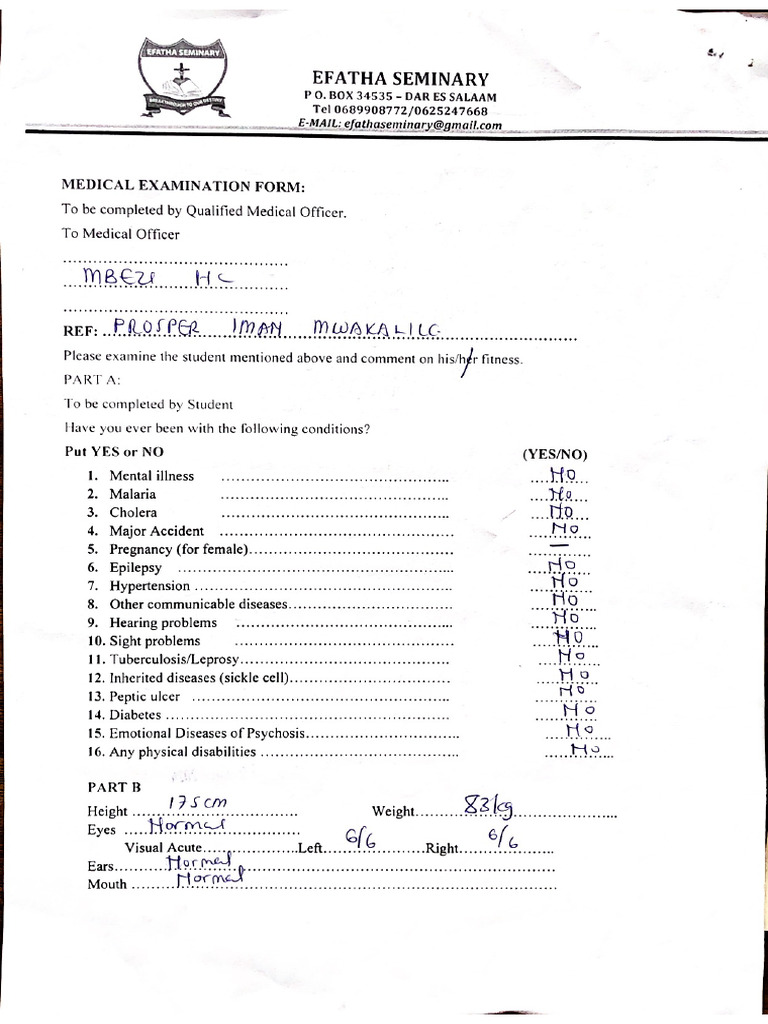 EFATHA SEMINARY
BREAKTHROUGH TO OUR DESTINY
EFATHA SEMINARY
P O. BOX 34535 – DAR ES SALAAM
Tel 0689908772/0625247668
E-MAIL: efathaseminary@gmail.com
MEDICAL EXAMINATION FORM:
To be completed by Qualified Medical Officer.
To Medical Officer
MBEZI HC
REF: PROSPER IMAN MWAKALILE
Please examine the student mentioned above and comment on his/her fitness.
PART A:
To be completed by Student
Have you ever been with the following conditions?
Put YES or NO (YES/NO)
1. Mental illness NO
2. Malaria No
3. Cholera NO
4. Major Accident NO
5. Pregnancy (for female) —
6. Epilepsy NO
7. Hypertension NO
8. Other communicable diseases NO
9. Hearing problems NO
10. Sight problems NO
11. Tuberculosis/Leprosy No
12. Inherited diseases (sickle cell) NO
13. Peptic ulcer NO
14. Diabetes NO
15. Emotional Diseases of Psychosis No
16. Any physical disabilities No
PART B
Height 175cm Weight 83kg
Eyes Normal
Visual Acute Left 6/6 Right 6/6
Ears Normal
Mouth Normal